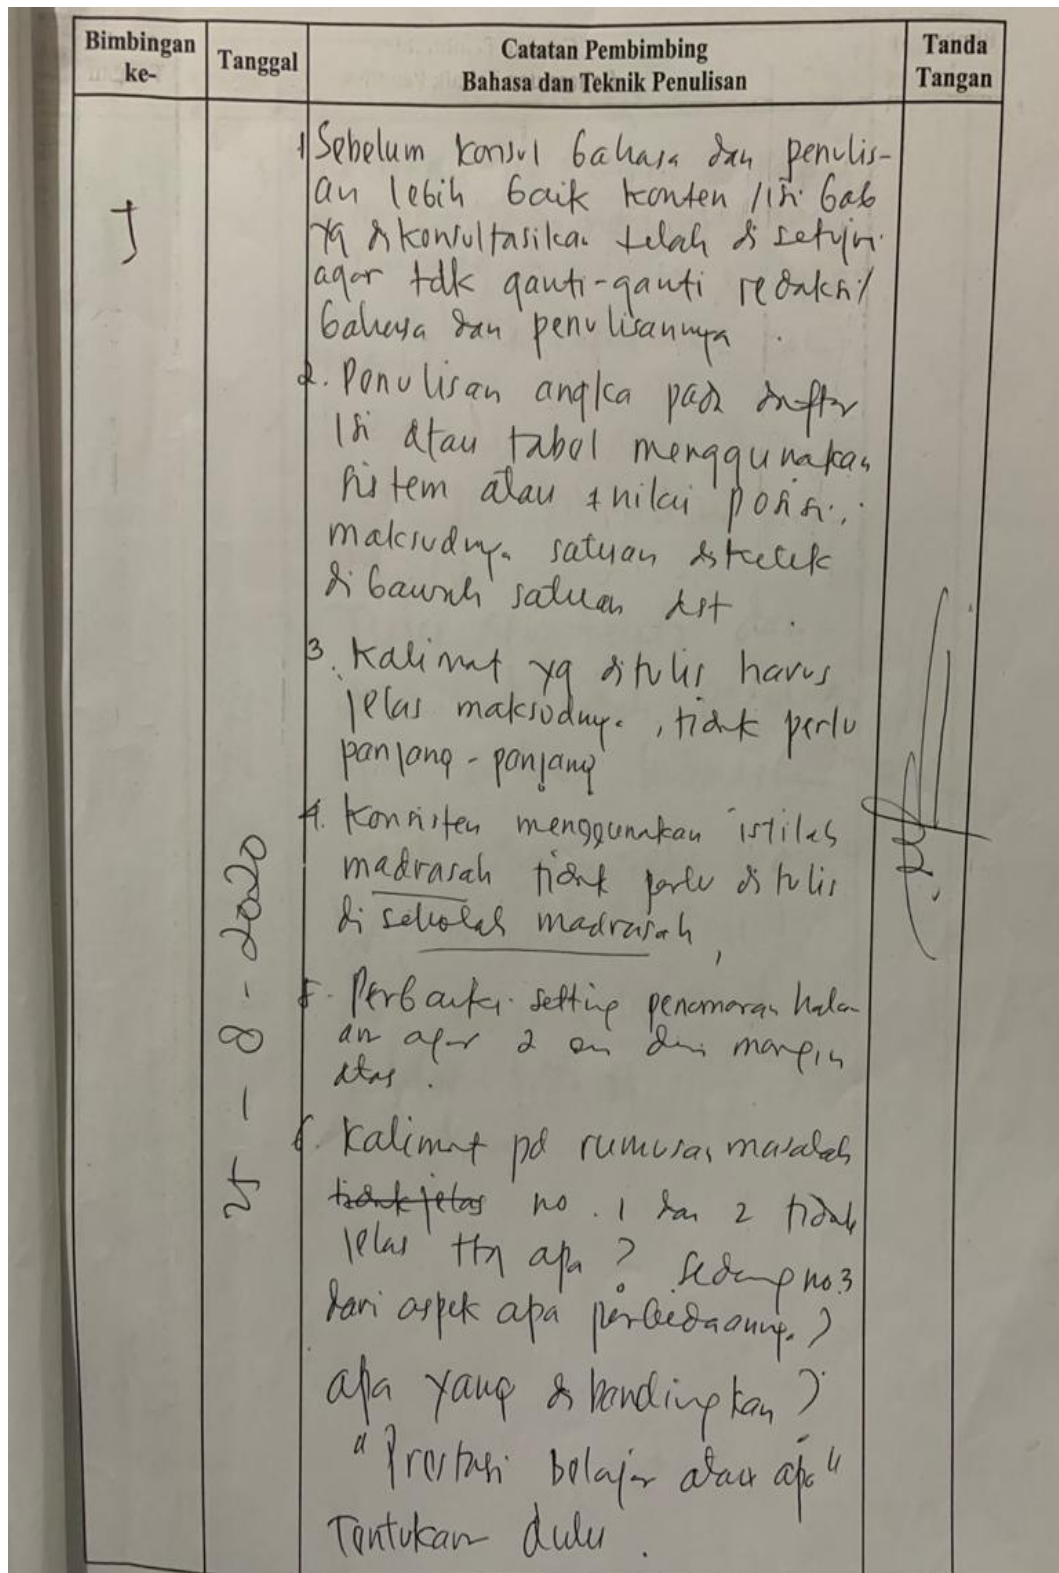 Bimbingan ke-
Tanggal
Catatan Pembimbing
Bahasa dan Teknik Penulisan
Tanda Tangan
1 Sebelum konsul bahasa dan penulis-
an lebih baik konten / isi bab
yg dikonsultasikan telah disetujui
agar tdk ganti-ganti redaksi/
bahasa dan penulisannya.
2. Penulisan angka pada daftar
isi atau tabel menggunakan
sistem atau nilai posisi,
maksudnya satuan diketik
di bawah satuan dst.
3. Kalimat yg ditulis harus
jelas maksudnya, tidak perlu
panjang-panjang
4. Konsisten menggunakan istilah
madrasah tidak perlu ditulis
di sekolah madrasah,
5. Perbaiki setting penomoran halam
an agar 2 cm dari margin
atas.
6. Kalimat pd rumusan masalah
tidak jelas no. 1 dan 2 tidak
jelas ttg apa? Sedang no. 3
dari aspek apa perbedaannya?
apa yang dibandingkan?
"Prestasi belajar atau apa"
Tentukan dulu.
25 - 8 - 2020